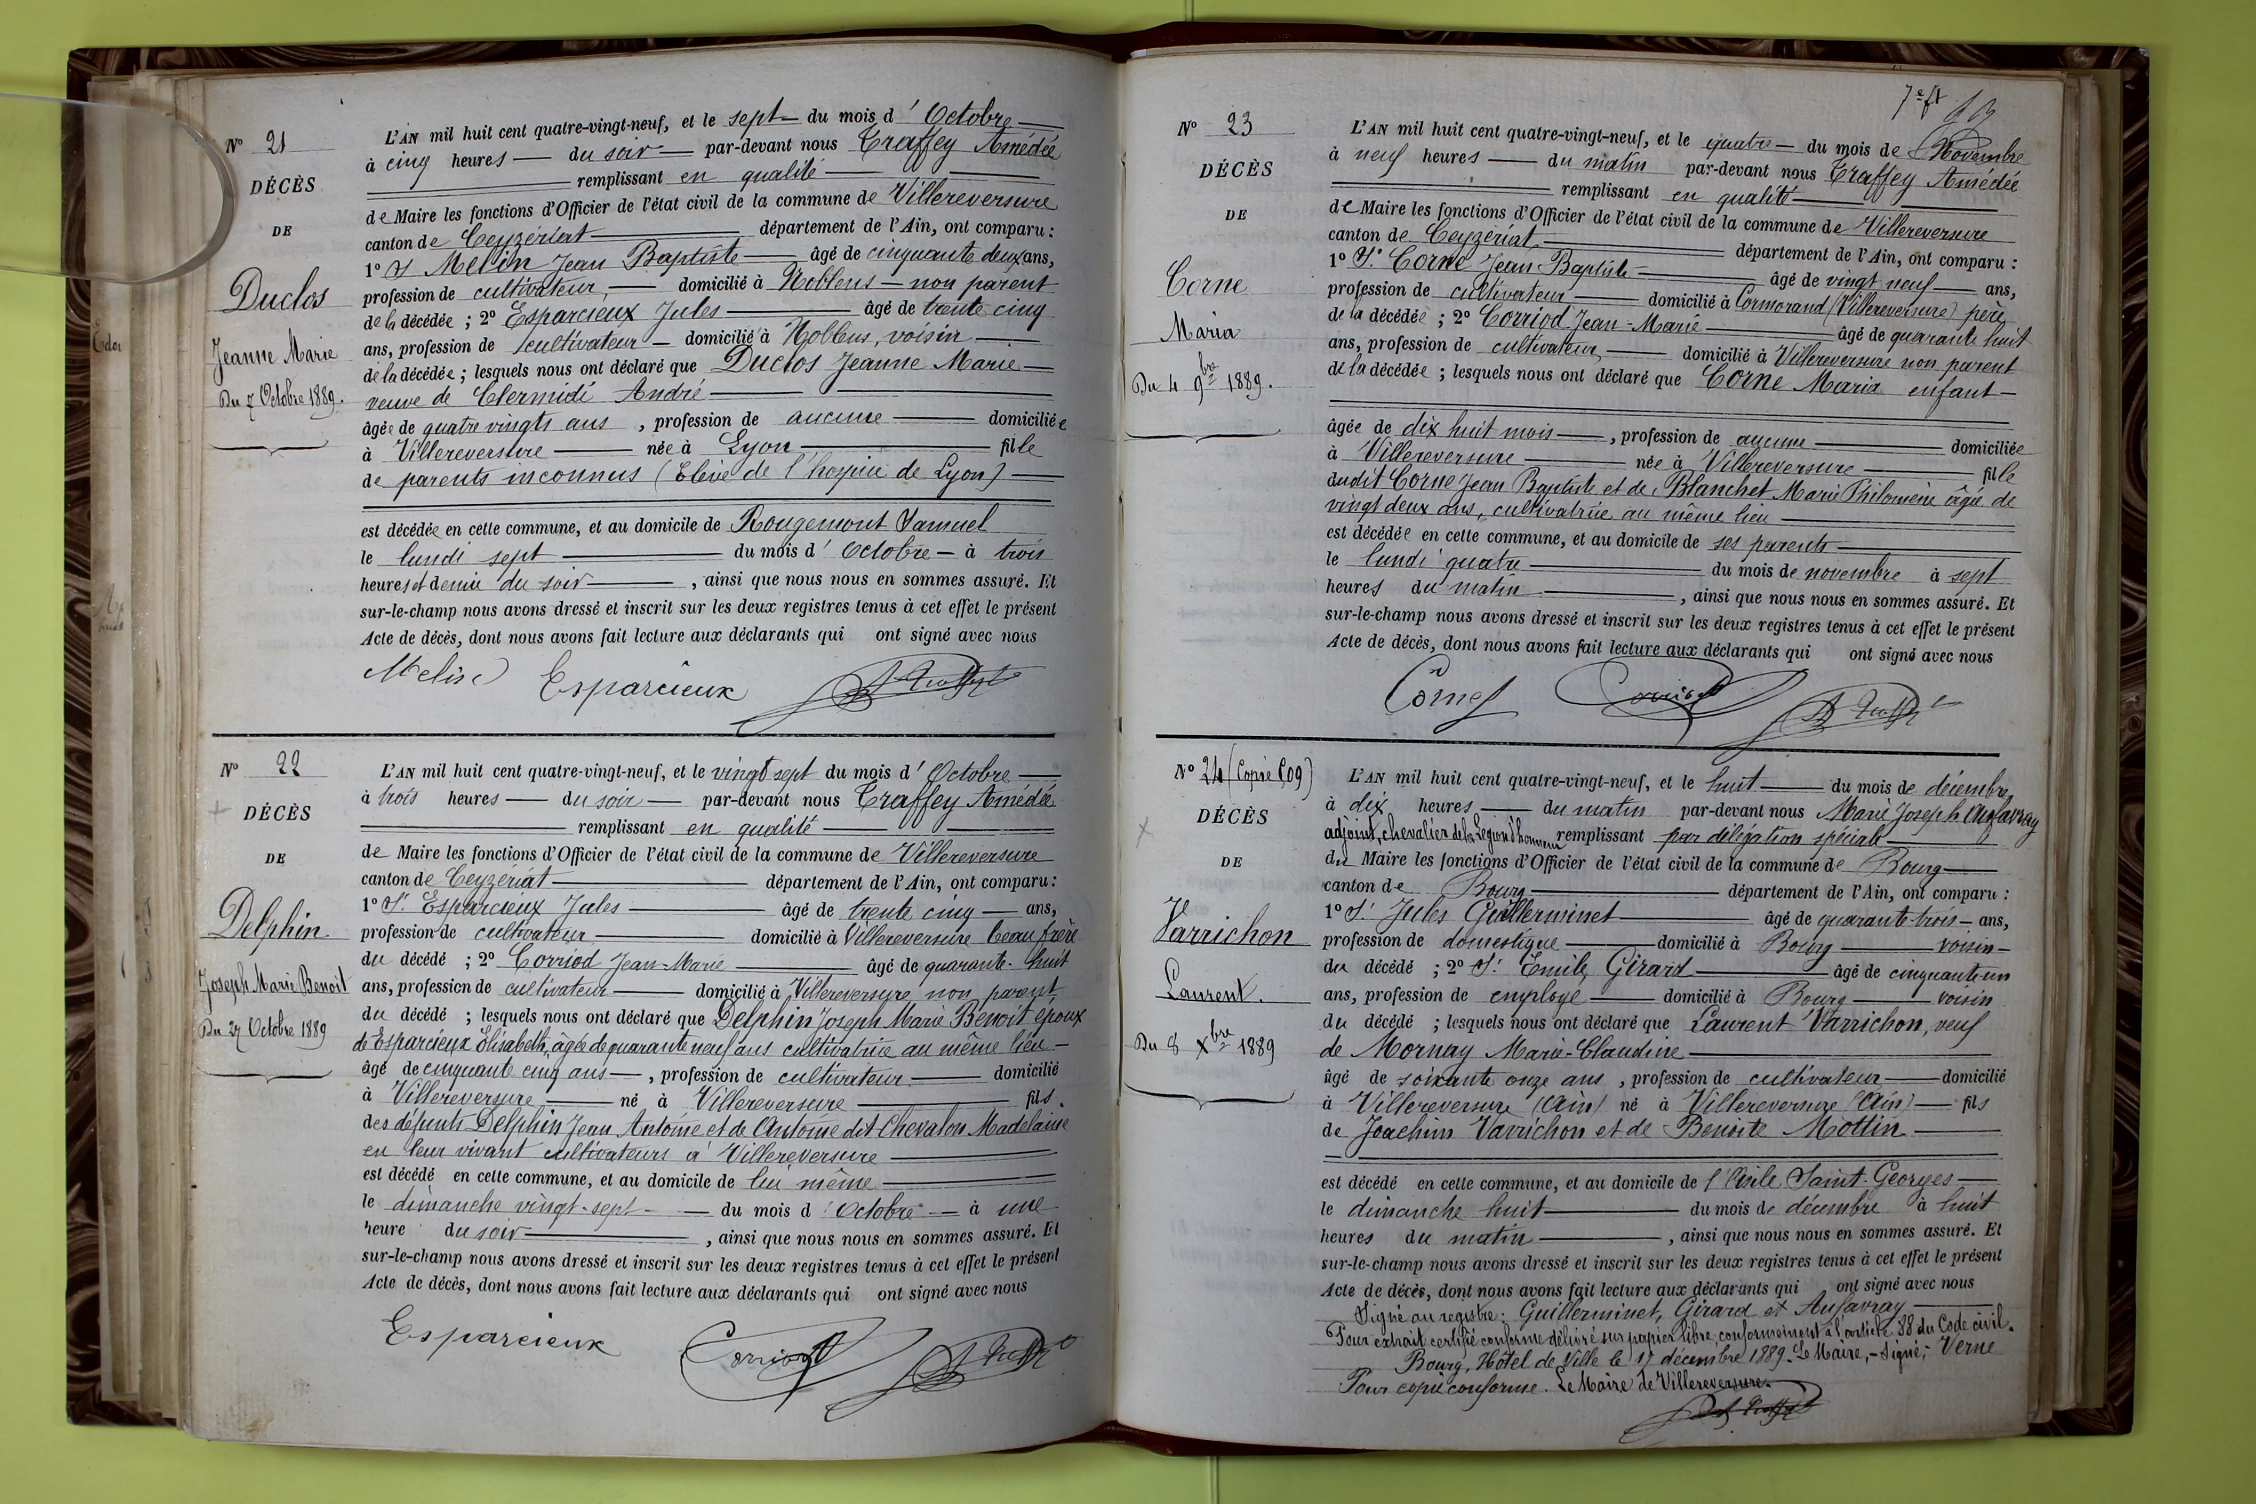 Nº 21
DÉCÈS
DE
Duclos
Jeanne Marie
Du 7 Octobre 1889.
L'AN mil huit cent quatre-vingt-neuf, et le sept du mois d'Octobre
à cinq heures du soir par-devant nous Traffey Amédée
remplissant en qualité
de Maire les fonctions d'Officier de l'état civil de la commune de Villereversure
canton de Ceyzériat département de l'Ain, ont comparu :
1º S Melin Jean Baptiste âgé de cinquante deux ans,
profession de cultivateur, domicilié à Noblens non parent
de la décédée ; 2º Esparcieux Jules âgé de trente cinq
ans, profession de cultivateur domicilié à Noblens, voisin
de la décédée ; lesquels nous ont déclaré que Duclos Jeanne Marie
veuve de Clermidi André
âgée de quatre vingts ans , profession de aucune domiciliée
à Villereversure née à Lyon fille
de parents inconnus (Elève de l'hospice de Lyon)
est décédée en cette commune, et au domicile de Rougemont Samuel
le lundi sept du mois d'Octobre à trois
heures et demie du soir , ainsi que nous nous en sommes assuré. Et
sur-le-champ nous avons dressé et inscrit sur les deux registres tenus à cet effet le présent
Acte de décès, dont nous avons fait lecture aux déclarants qui ont signé avec nous
Esparcieux
Nº 22
DÉCÈS
DE
Delphin
Joseph Marie Benoit
Du 27 Octobre 1889
L'AN mil huit cent quatre-vingt-neuf, et le vingt sept du mois d'Octobre
à trois heures du soir par-devant nous Traffey Amédée
remplissant en qualité
de Maire les fonctions d'Officier de l'état civil de la commune de Villereversure
canton de Ceyzériat département de l'Ain, ont comparu :
1º Sr Esparcieux Jules âgé de trente cinq ans,
profession de cultivateur domicilié à Villereversure beau frère
du décédé ; 2º Corriod Jean-Marie âgé de quarante-huit
ans, profession de cultivateur domicilié à Villereversure non parent
du décédé ; lesquels nous ont déclaré que Delphin Joseph Marie Benoit époux
de Esparcieux Elisabeth, âgée de quarante neuf ans cultivatrice au même lieu
âgé de cinquante cinq ans , profession de cultivateur domicilié
à Villereversure né à Villereversure fils
des défunts Delphin Jean Antoine et de Antoine dit Chevalon Madelaine
en leur vivant cultivateurs à Villereversure
est décédé en cette commune, et au domicile de lui même
le dimanche vingt-sept du mois d'Octobre à une
heure du soir , ainsi que nous nous en sommes assuré. Et
sur-le-champ nous avons dressé et inscrit sur les deux registres tenus à cet effet le présent
Acte de décès, dont nous avons fait lecture aux déclarants qui ont signé avec nous
Esparcieux Corriod
7e ft
Nº 23
DÉCÈS
DE
Corne
Maria
Du 4 9bre 1889.
L'AN mil huit cent quatre-vingt-neuf, et le quatre du mois de Novembre
à neuf heures du matin par-devant nous Traffey Amédée
remplissant en qualité
de Maire les fonctions d'Officier de l'état civil de la commune de Villereversure
canton de Ceyzériat département de l'Ain, ont comparu :
1º Sr Corne Jean-Baptiste âgé de vingt neuf ans,
profession de cultivateur domicilié à Cormorand (Villereversure) père
de la décédée ; 2º Corriod Jean-Marie âgé de quarante huit
ans, profession de cultivateur domicilié à Villereversure non parent
de la décédée ; lesquels nous ont déclaré que Corne Maria enfant
âgée de dix huit mois , profession de aucune domiciliée
à Villereversure née à Villereversure fille
dudit Corne Jean Baptiste et de Blanchet Marie Philomène âgée de
vingt deux ans, cultivatrice au même lieu
est décédée en cette commune, et au domicile de ses parents
le lundi quatre du mois de novembre à sept
heures du matin , ainsi que nous nous en sommes assuré. Et
sur-le-champ nous avons dressé et inscrit sur les deux registres tenus à cet effet le présent
Acte de décès, dont nous avons fait lecture aux déclarants qui ont signé avec nous
Corriod
Nº 24 (Copié C09)
DÉCÈS
DE
Varrichon
Laurent.
Du 8 Xbre 1889
L'AN mil huit cent quatre-vingt-neuf, et le huit du mois de décembre
à dix heures du matin par-devant nous Marie Joseph Aufavray
adjoint, chevalier de la Légion d'honneur remplissant par délégation spéciale
du Maire les fonctions d'Officier de l'état civil de la commune de Bourg
canton de Bourg département de l'Ain, ont comparu :
1º Sr Jules Guillerminet âgé de quarante-trois ans,
profession de domestique domicilié à Bourg voisin
du décédé ; 2º Sr Emile Girard âgé de cinquante-un
ans, profession de employé domicilié à Bourg voisin
du décédé ; lesquels nous ont déclaré que Laurent Varrichon, veuf
de Mornay Marie-Claudine
âgé de soixante onze ans , profession de cultivateur domicilié
à Villereversure (Ain) né à Villereversure (Ain) fils
de Joachim Varrichon et de Benoite Mottin
est décédé en cette commune, et au domicile de l'Asile Saint-Georges
le dimanche huit du mois de décembre à huit
heures du matin , ainsi que nous nous en sommes assuré. Et
sur-le-champ nous avons dressé et inscrit sur les deux registres tenus à cet effet le présent
Acte de décès, dont nous avons fait lecture aux déclarants qui ont signé avec nous
Signé au registre : Guillerminet, Girard et Aufavray
Pour extrait certifié conforme délivré sur papier libre conformément à l'article 88 du Code civil.
Bourg, Hôtel de Ville le 17 décembre 1889. Le Maire, – signé : Verne
Pour copie conforme. Le Maire de Villereversure.